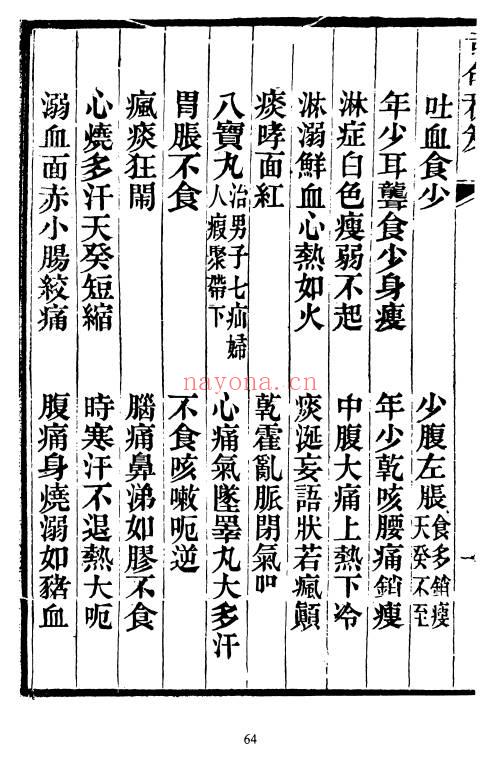 吐血食少
少腹左脹食多銷瘦天癸不至
年少耳聾食少身瘦
年少乾咳腰痛銷瘦
淋症白色瘦弱不起
中腹大痛上熱下冷
淋溺鮮血心熱如火
痰涎妄語狀若瘋顛
痰哮面紅
乾霍亂脈閉氣吅
八寶丸治男子七疝婦人瘕聚帶下
心痛氣墜睪丸大多汗
胃脹不食
不食咳嗽呃逆
瘋痰狂鬧
腦痛鼻涕如膠不食
心燒多汗天癸短縮
時寒汗不退熱大呃
溺血面赤小腸絞痛
腹痛身燒溺如豬血
nayona.cn
64